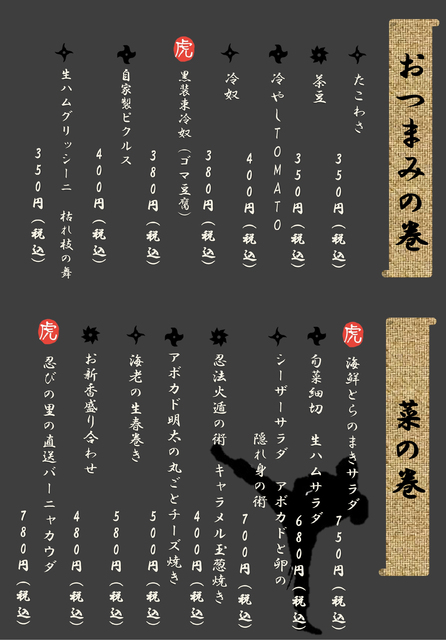 おつまみの巻
たこわさ
350円(税込)
茶豆
350円(税込)
冷やしTOMATO
400円(税込)
冷奴
380円(税込)
虎
黒装束冷奴(ゴマ豆腐)
380円(税込)
自家製ピクルス
400円(税込)
生ハムグリッシーニ 枯れ枝の舞
350円(税込)
菜の巻
虎
海鮮とらのまきサラダ
750円(税込)
旬菜細切 生ハムサラダ
680円(税込)
シーザーサラダ アボカドと卵の
隠れ身の術
700円(税込)
忍法火遁の術 キャラメル玉葱焼き
400円(税込)
アボカド明太の丸ごとチーズ焼き
500円(税込)
海老の生春巻き
580円(税込)
お新香盛り合わせ
480円(税込)
虎
忍びの里の直送バーニャカウダ
780円(税込)